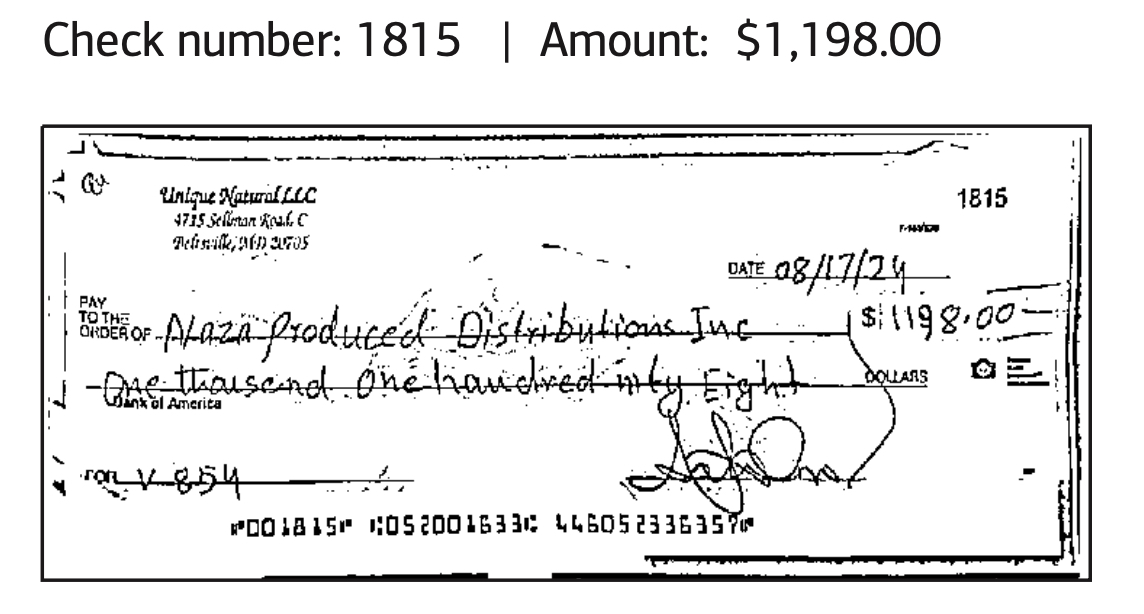 Check number: 1815 | Amount: $1,198.00
Unique Natural LLC
4715 Sellman Road, C
Beltsville, MD 20705
1815
DATE 08/17/24
PAY
TO THE
ORDER OF Plaza Produced Distributions Inc $ 1198.00
One thousand One haundred Eight DOLLARS
Bank of America
FOR V 854
⑈001815⑈ ⑆052001633⑆ 446052336357⑈